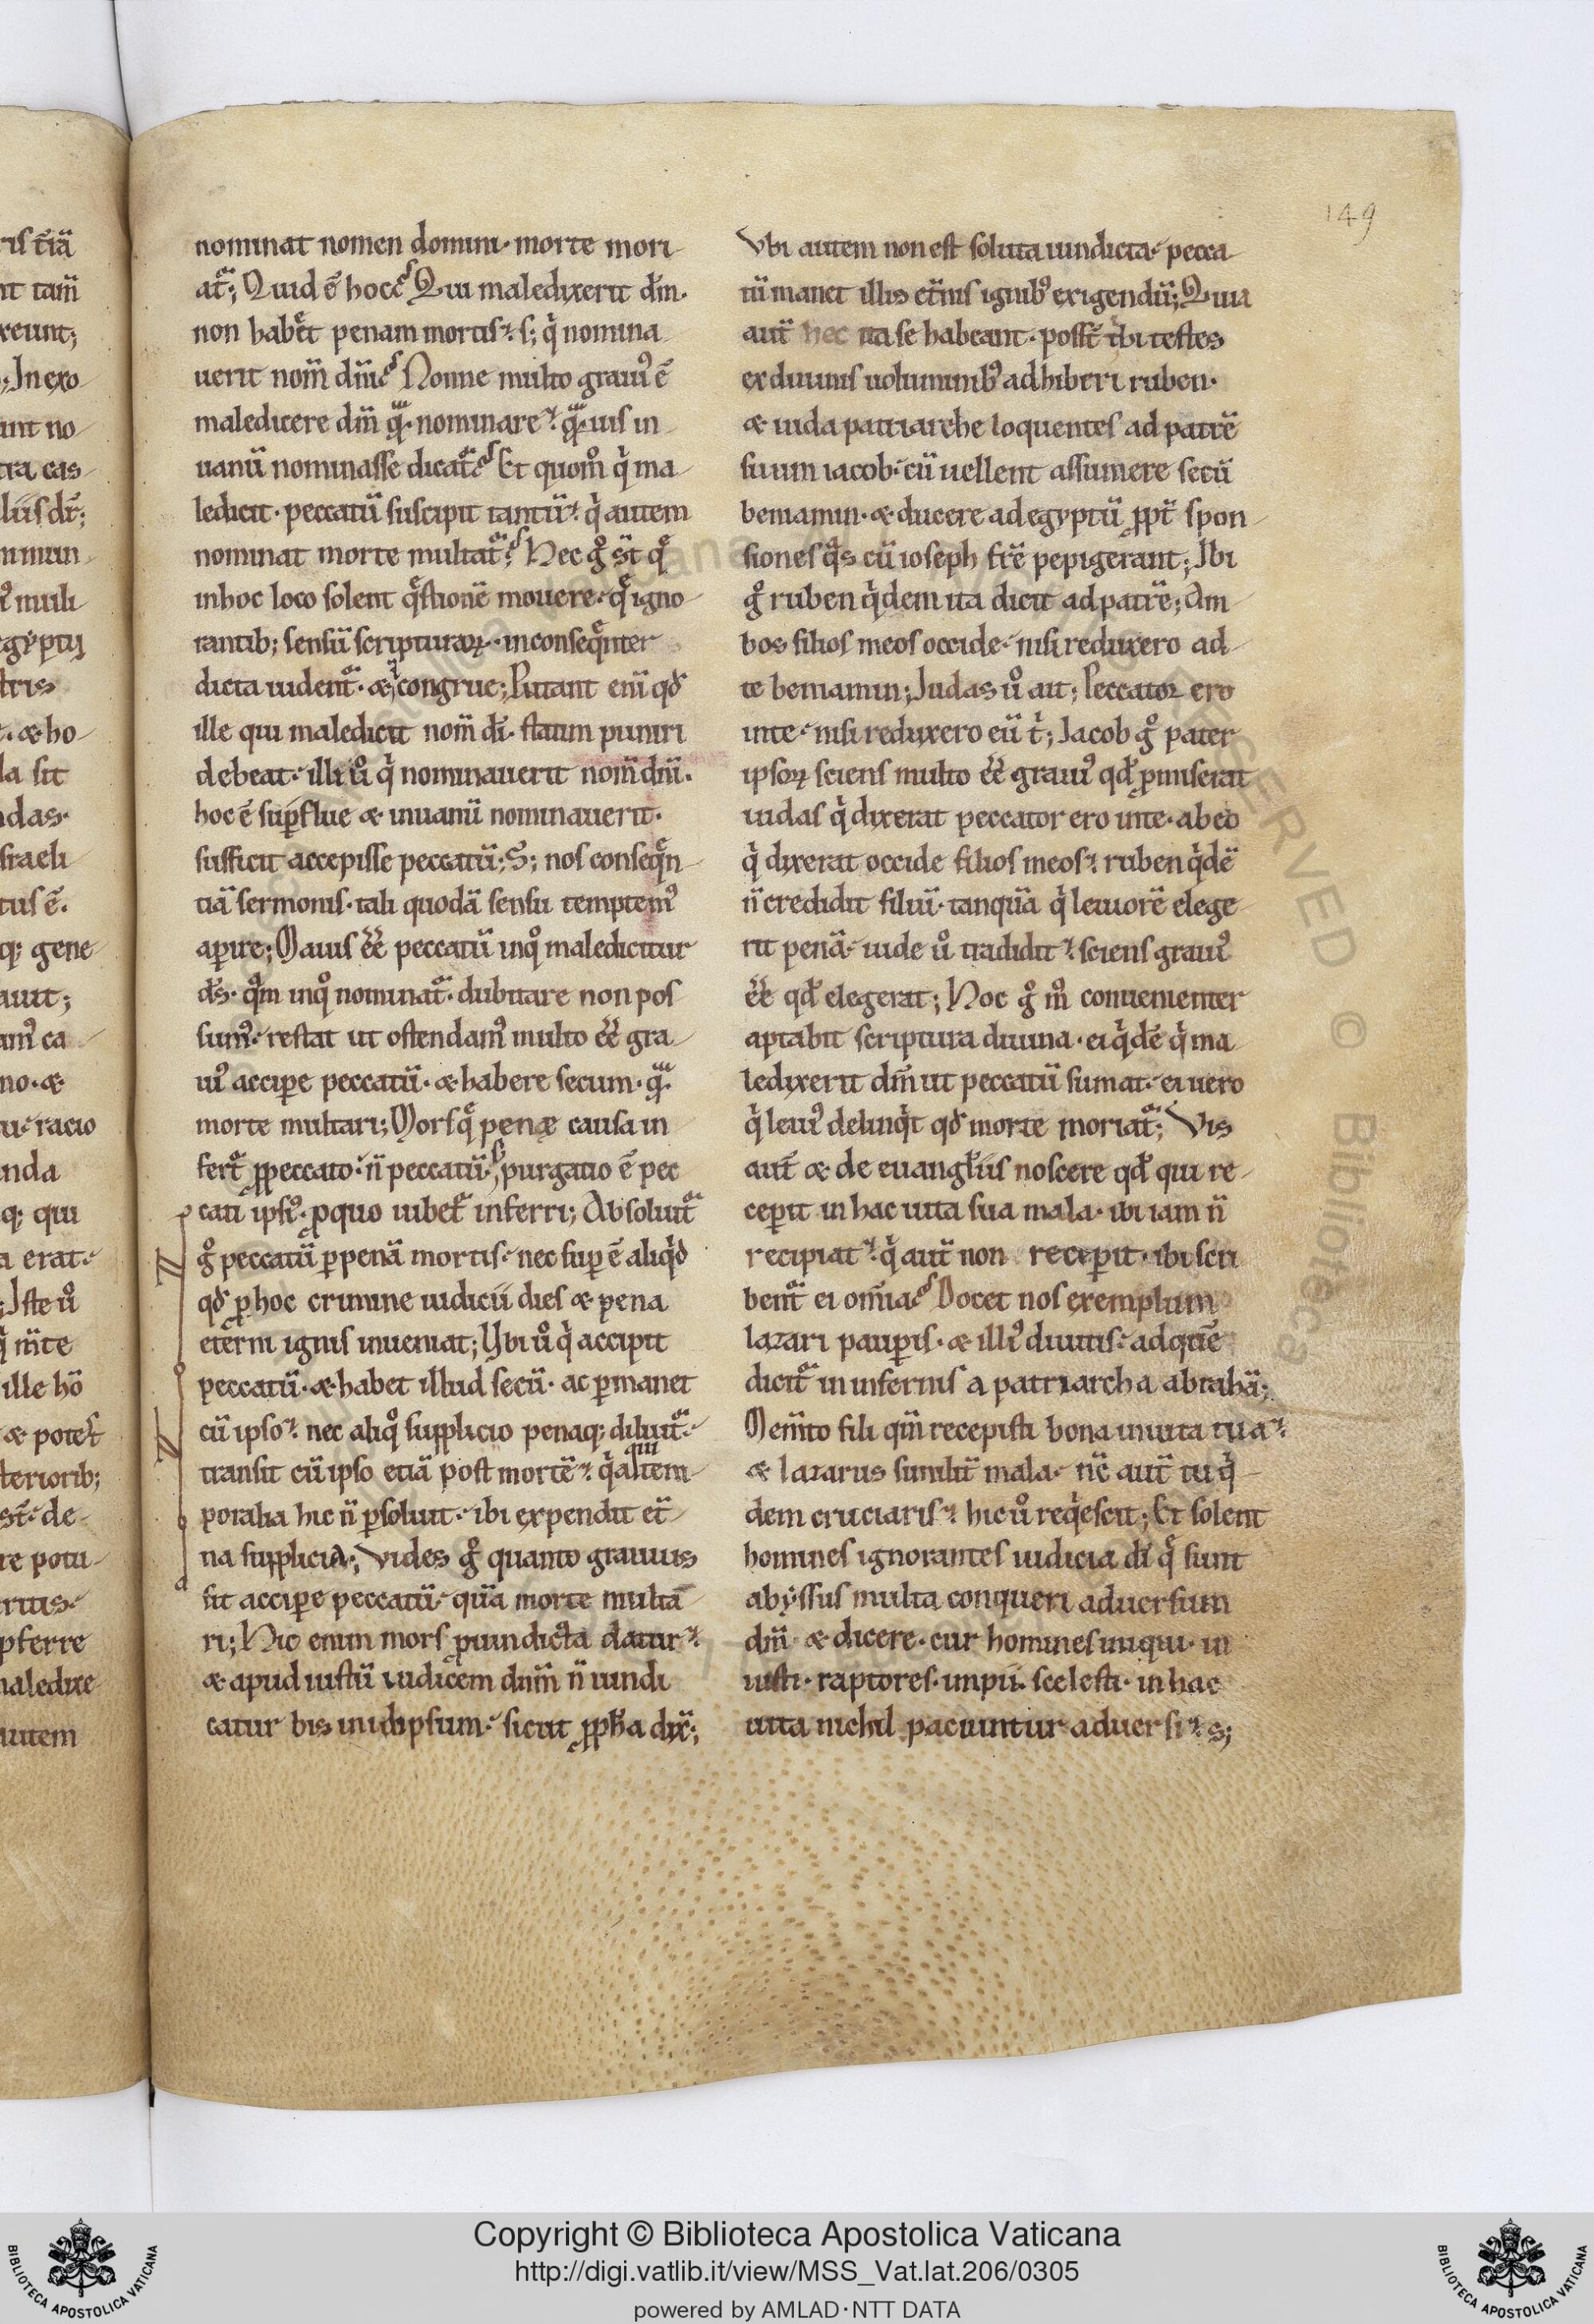 149
nominat nomen domini· morte mori
at᷑; Quid ē hoc? Qui maledixerit dm̄·
non habet penam mortis· s; q̇ nomina
uerit nom̄ dm̄i? Nonne multo graui᷒ ē
maledicere dm̄ q̄· nominare· q̄uis in
uanū nominasse dicat᷑? Et quom̊ q̇ ma
ledicit· peccatū suscipit tantū· q̇ autem
nominat morte multat᷑? Hec g̊ s̄t q̄
inhoc loco solent q̄stionē mouere· q̄ igno
rantib; sensū scripturaꝝ· inconseq̄nter
dicta uident᷑· & congrue; Putant eni̅ qd̄
ille qui maledicit nom̄ di̅· statim puniri
debeat· illi ů q̇ nominauerit nom̄ dn̄i·
hoc ē suꝑflue & inuanū nominauerit·
sufficit accepisse peccatū; S; nos conseq̄n
tiā sermonis· tali quodā sensu temptem᷒
aꝑire; Mauis ēē peccatū inq̊ maledicitur
ds̄· q̊m inq̊ nominat᷑· dubitare non pos
sum᷒· restat ut ostendam᷒ multo ēē gra
ui᷒ acciꝑe peccatū· & habere secum· q̄·
morte multari; Mors q̄ penæ causa in
fert᷑ ꝓpeccato· n̄ peccatū· s; purgatio ē pec
cati ipsi᷒· ꝓquo iubet᷑ inferri; Absoluit᷑
g̊ peccatū ꝑpenā mortis· nec suꝑ ē aliq̇d
qd̄ ꝓ hoc crimine iudicii dies & pena
eterni ignis inueniat; Ubi ů q̇ accipit
peccatū· & habet illud secū· ac ꝑmanet
cū ipso· nec aliq̊ supplicio penaq; diluit᷑·
transit cū ipso etiā post mortē· q̇a tem
poralia hic n̄ ꝑsoluit· ibi expendit et̄
na supplicia; Vides g̊ quanto grauius
sit acciꝑe peccatū· quā morte multa
ri; Hic enim mors ꝓuindicta datur·
& apud iustū iudicem dnm̄ n̄ uindi
catur bis inidipsum· sicut ꝓph̄a dix̄;
Vbi autem non est soluta uindicta· pecca
tū manet illis et̄nis ignib᷒ exigendū; Quia
aut̄ hec ita se habeant· posst̄ tibi testes
ex diuinis uoluminib᷒ adhiberi ruben·
& iuda patriarche loquentes ad patrē
suum iacob· cū uellent assumere secū
beniamin· & ducere ad egyptū ꝓpt̄ spon
siones q̄s cū ioseph fr̄e pepigerant; Ibi
g̊ ruben q̇dem ita dicit ad patrē; Am
bos filios meos occide· nisi reduxero ad
te beniamin; Judas ů ait; Peccator ero
inte· nisi reduxero eū ṫ; Jacob g̊ pater
ipsoꝝ sciens multo ēē graui᷒ qd̄ ꝓmiserat
iudas q̇ dixerat peccator ero inte· ab eo
q̇ dixerat occide filios meos· ruben q̇dē
n̄ credidit filiū· tanquā q̇ leuiorē elege
rit penā· iude ů tradidit· sciens graui᷒
ēē qd̄ elegerat; Hoc g̊ m̊ conuenienter
aptabit scriptura diuina· ei q̇dē q̇ ma
ledixerit dm̄ ut peccatū sumat· ei uero
q̇ leui᷒ delinq̇t qd̄ morte moriat᷑; Vis
aut̄ & de euangliis noscere qd̄ qui re
ceꝑit in hac uita sua mala· ibi iam n̄
recipiat· q̇ aut̄ non receꝑit· ibi seru
bent᷑ ei om̄ia? Docet nos exemplum
lazari pauꝑis· & illi᷒ diuitis· ad quē
dicit᷑ in infernis a patriarcha abrahā;
Mem̄to fili qm̄ recepisti bona inuita tua·
& lazarus similit̄ mala· nc̄ aut̄ tu q̇
dem cruciaris· hic ů req̇escit; Et solent
homines ignorantes iudicia di̅ q̄ sunt
abyssus multa conqueri aduersum
dm̄ & dicere· cur homines iniqui· in
iusti· raptores· impii· scelesti· in hac
uita nichil paciuntur aduersi· s;
Copyright © Biblioteca Apostolica Vaticana
http://digi.vatlib.it/view/MSS_Vat.lat.206/0305
powered by AMLAD·NTT DATA
BIBLIOTECA APOSTOLICA VATICANA
BIBLIOTECA APOSTOLICA VATICANA